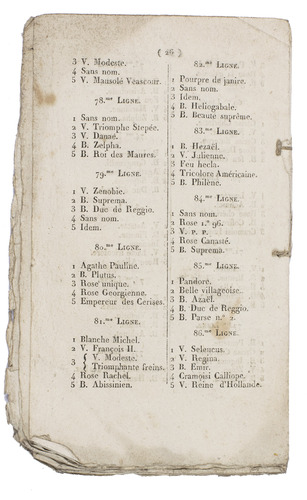 ( 26 )
3 V. Modeste.
4 Sans nom.
5 V. Mausolé Véascour.
78.me LIGNE.
1 Sans nom.
2 V. Triomphe Stepée.
3 V. Danaé.
4 B. Zelpha.
5 B. Roi des Maures.
79.me LIGNE.
1 V. Zenobie.
2 B. Suprema.
3 B. Duc de Reggio.
4 Sans nom.
5 Idem.
80.me LIGNE.
1 Agathe Pauline.
2 B. Plutus.
3 Rose unique.
4 Rose Georgienne.
5 Empereur des Cerises.
81.me LIGNE.
1 Blanche Michel.
2 V. François II.
3 { V. Modeste.
Triomphante freins.
4 Rose Rachel.
5 B. Abissinien.
82.me LIGNE.
1 Pourpre de janire.
2 Sans nom.
3 Idem.
4 B. Heliogabale.
5 B. Beaute suprême.
83.me LIGNE.
1 B. Hezaël.
2 V. Julienne.
3 Feu hecla.
4 Tricolore Américaine.
5 B. Philène.
84.me LIGNE.
1 Sans nom.
2 Rose 1.º 96.
3 V. P. P.
4 Rose Canasté.
5 B. Suprema.
85.me LIGNE.
1 Pandore.
2 Belle villageoise.
3 B. Azaël.
4 B. Duc de Reggio.
5 B. Parse n.º 2.
86.me LIGNE.
1 V. Seleucus.
2 V. Regina.
3 B. Emir.
4 Cramoisi Calliope.
5 V. Reine d'Hollande.